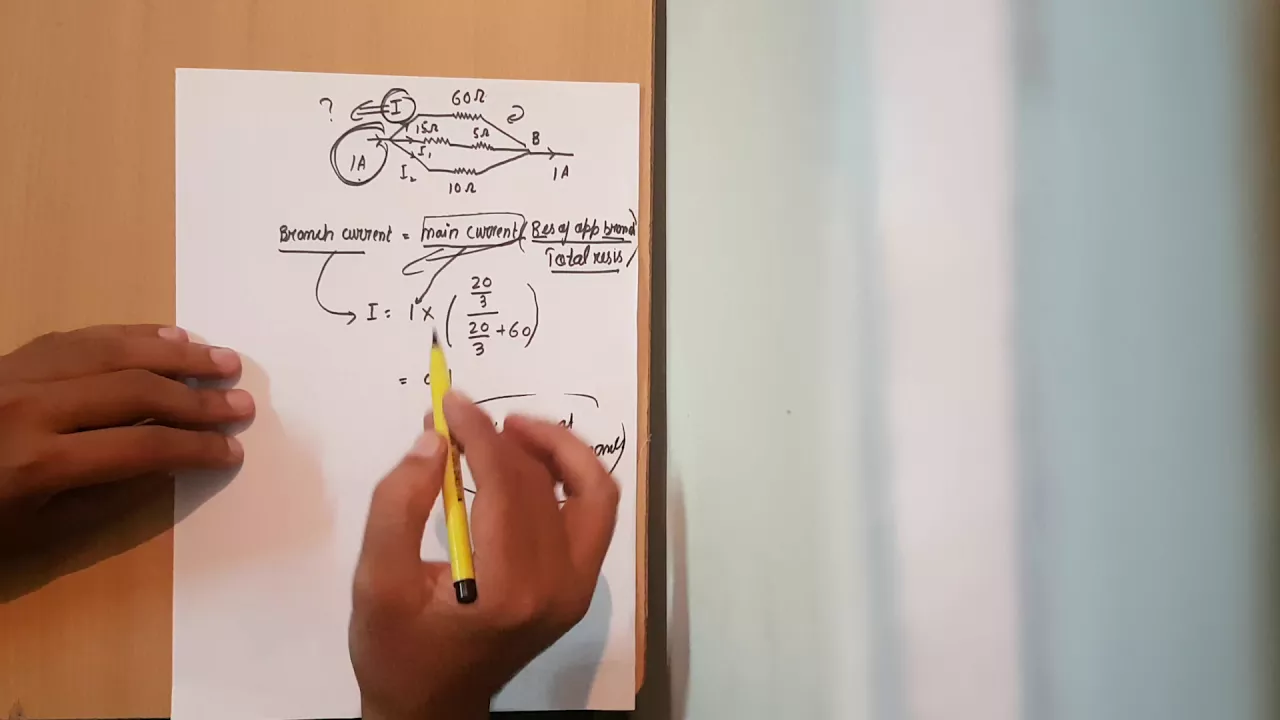 ? I 60Ω
15Ω 5Ω B
1A I₁
I₂ 1A
10Ω
Branch current = main current (Res of opp branch
Total resis)
I = 1 × (20/3
20/3 + 60)
=